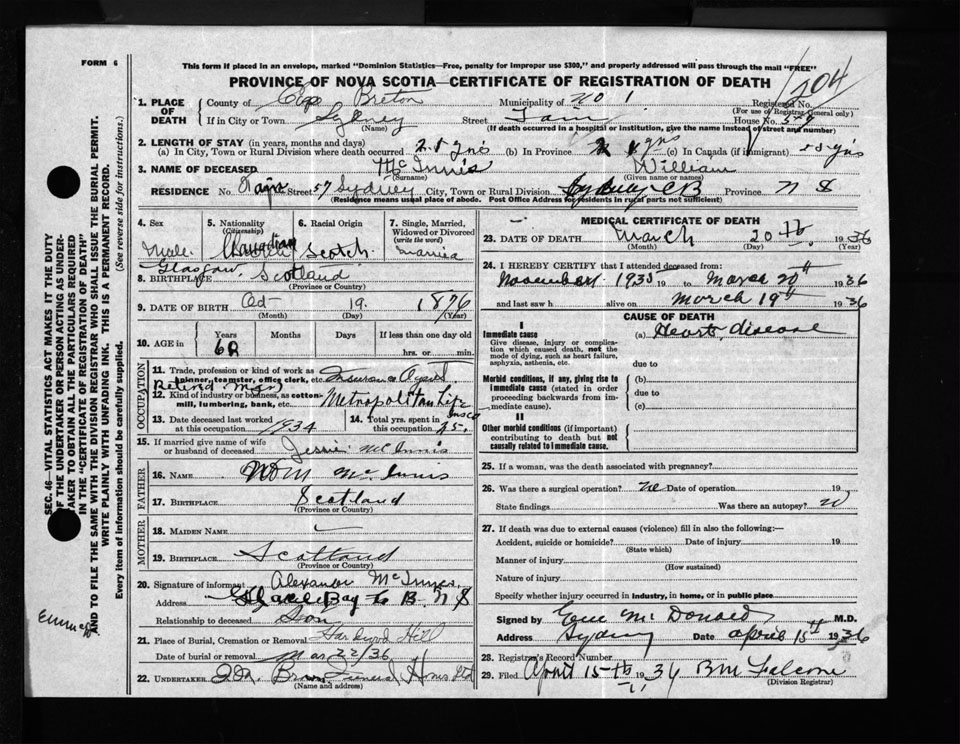 FORM 6
This form if placed in an envelope, marked "Dominion Statistics—Free, penalty for improper use $300," and properly addressed will pass through the mail "FREE"
PROVINCE OF NOVA SCOTIA—CERTIFICATE OF REGISTRATION OF DEATH
1204
1. PLACE OF DEATH { County of Cape Breton Municipality of No 1 Registered No.
(For use of Registrar General only)
If in City or Town Sydney Street House No.
(Name) (If death occurred in a hospital or institution, give the name instead of street and number)
2. LENGTH OF STAY (in years, months and days)
(a) In City, Town or Rural Division where death occurred yrs (b) In Province yrs (c) In Canada (if immigrant) yrs
3. NAME OF DECEASED McInnis William
(Surname) (Given name or names)
RESIDENCE No. Street 57 Sydney City, Town or Rural Division Sydney CB Province N S
(Residence means usual place of abode. Post Office Address for residents in rural parts not sufficient)
4. Sex 5. Nationality (Citizenship) 6. Racial Origin 7. Single, Married, Widowed or Divorced (write the word)
Male Canadian Scotch Married
Glasgow
8. BIRTHPLACE Scotland
(Province or Country)
9. DATE OF BIRTH Oct 19 1876
(Month) (Day) (Year)
10. AGE in { Years Months Days If less than one day old
60 hrs. or min.
OCCUPATION
11. Trade, profession or kind of work as spinner, teamster, office clerk, etc. Insurance Agent
Retired Man
12. Kind of industry or business, as cotton-mill, lumbering, bank, etc. Metropolitan Life Insce
13. Date deceased last worked at this occupation 1934 14. Total yrs. spent in this occupation 25
15. If married give name of wife or husband of deceased Jessie McInnis
FATHER
16. NAME Wm McInnis
17. BIRTHPLACE Scotland
(Province or Country)
MOTHER
18. MAIDEN NAME —
19. BIRTHPLACE Scotland
(Province or Country)
20. Signature of informant Alexander McInnes
Address Glace Bay C B. N S
Relationship to deceased Son
21. Place of Burial, Cremation or Removal Hardwood Hill
Date of burial or removal Mar 22/36
22. UNDERTAKER Funeral Home Ltd
(Name and address)
MEDICAL CERTIFICATE OF DEATH
23. DATE OF DEATH March 20th 1936
(Month) (Day) (Year)
24. I HEREBY CERTIFY that I attended deceased from:
November 1935 19 to March 20th 1936
and last saw h alive on March 19th 1936
CAUSE OF DEATH
I
Immediate cause (a) Heart disease
Give disease, injury or complication which caused death, not the mode of dying, such as heart failure, asphyxia, asthenia, etc.
due to
Morbid conditions, if any, giving rise to immediate cause (stated in order proceeding backwards from immediate cause).
(b)
due to
(c)
II
Other morbid conditions (if important) contributing to death but not causally related to immediate cause.
25. If a woman, was the death associated with pregnancy?
26. Was there a surgical operation? no Date of operation 19
State findings Was there an autopsy? no
27. If death was due to external causes (violence) fill in also the following:—
Accident, suicide or homicide? Date of injury 19
(State which)
Manner of injury
(How sustained)
Nature of injury
Specify whether injury occurred in industry, in home, or in public place
Signed by McDonald M.D.
Address Sydney Date April 15th 1936
28. Registrar's Record Number
29. Filed April 15th 1934 B M Falconer
(Division Registrar)
SEC. 46—VITAL STATISTICS ACT MAKES IT THE DUTY
OF THE UNDERTAKER OR PERSON ACTING AS UNDERTAKER TO OBTAIN ALL THE PARTICULARS REQUIRED
IN THE "CERTIFICATE OF REGISTRATION OF DEATH"
AND TO FILE THE SAME WITH THE DIVISION REGISTRAR WHO SHALL ISSUE THE BURIAL PERMIT.
WRITE PLAINLY WITH UNFADING INK. THIS IS A PERMANENT RECORD.
Every item of information should be carefully supplied. (See reverse side for instructions.)